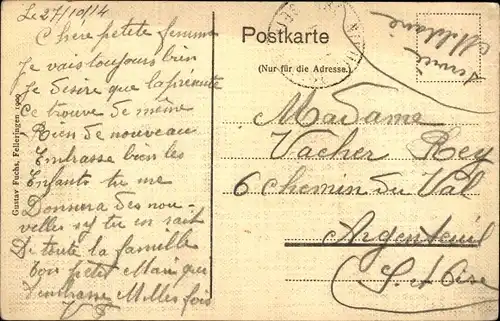 Le 27/10/14
Chere petite femme
Je vais toujours bien
Je desire que la présente
Ce trouve de même
Rien de nouveau
Embrasse bien les
Enfants tu me
Donnera des nou-
velles si tu en sait
De toute la famille
ton petit Mari que
t'embrasse Milles fois
Gustav Fuchs, Felleringen
Postkarte
(Nur für die Adresse.)
Militaire
Madame
Vacher Rey
6 Chemin du Val
Argenteuil
S. et Oise